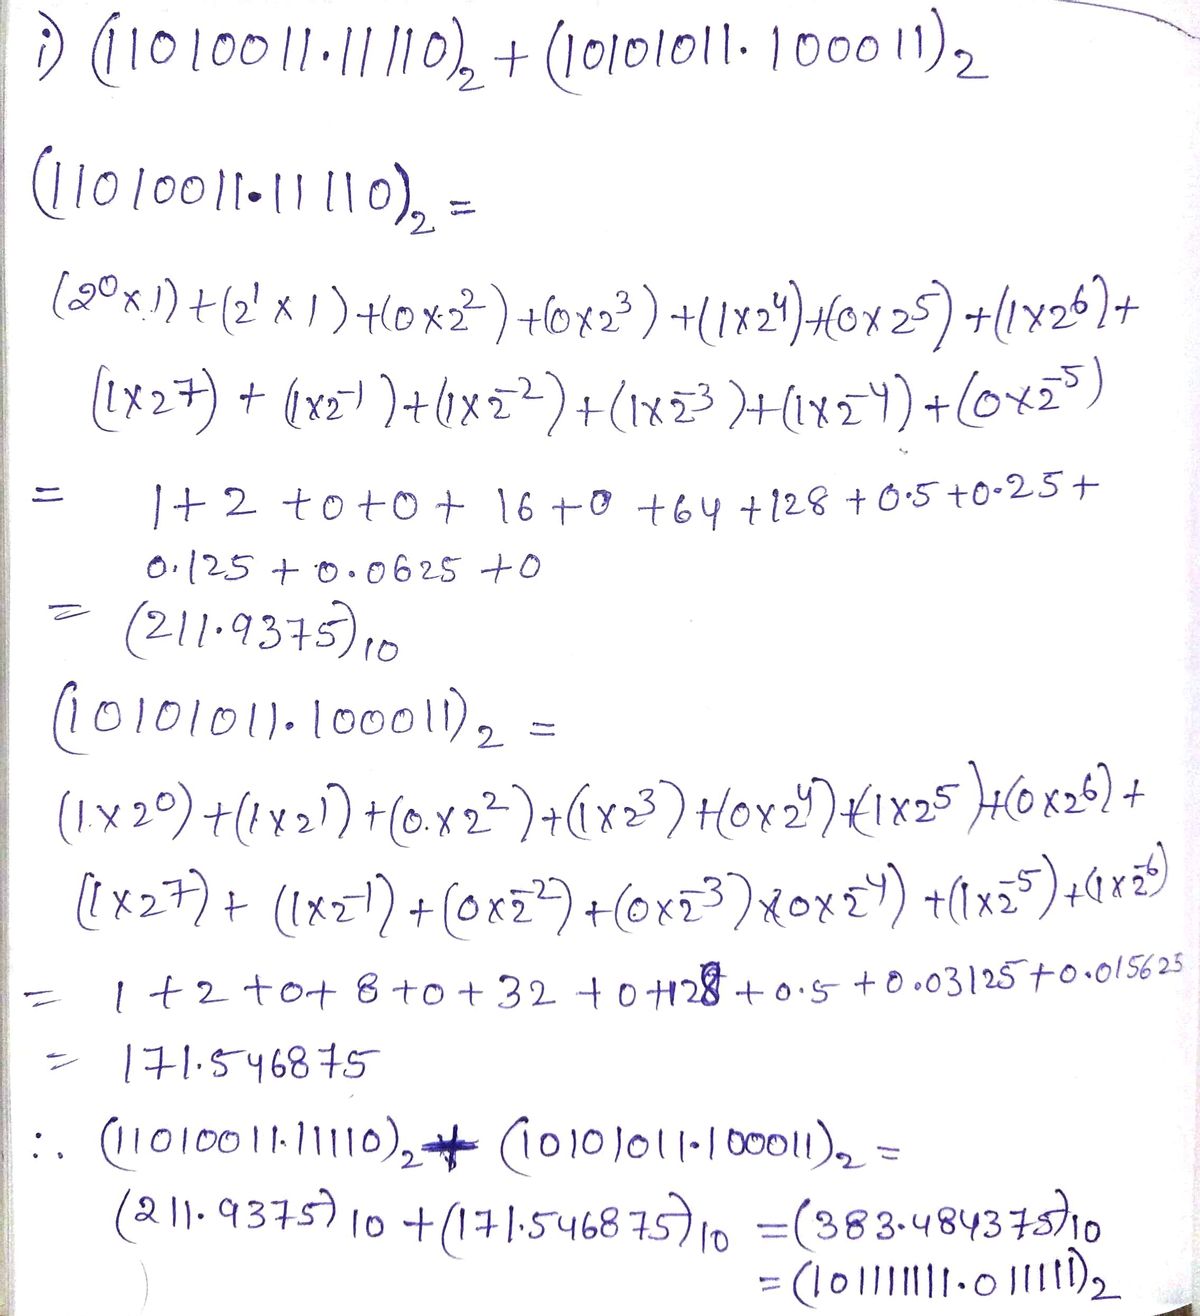 i) (11010011.11110)₂ + (10101011.100011)₂
(11010011.11110)₂ =
(2⁰×1)+(2¹×1)+(0×2²)+(0×2³)+(1×2⁴)+(0×2⁵)+(1×2⁶)+
(1×2⁷) + (1×2⁻¹)+(1×2⁻²)+(1×2⁻³)+(1×2⁻⁴)+(0×2⁻⁵)
= 1+2+0+0+16+0+64+128+0.5+0.25+
0.125+0.0625+0
= (211.9375)₁₀
(10101011.100011)₂ =
(1×2⁰)+(1×2¹)+(0×2²)+(1×2³)+(0×2⁴)+(1×2⁵)+(0×2⁶)+
(1×2⁷)+(1×2⁻¹)+(0×2⁻²)+(0×2⁻³)+(0×2⁻⁴)+(1×2⁻⁵)+(1×2⁻⁶)
= 1+2+0+8+0+32+0+128+0.5+0.03125+0.015625
= 171.546875
∴ (11010011.11110)₂ + (10101011.100011)₂ =
(211.9375)₁₀ + (171.546875)₁₀ = (383.484375)₁₀
= (101111111.011111)₂